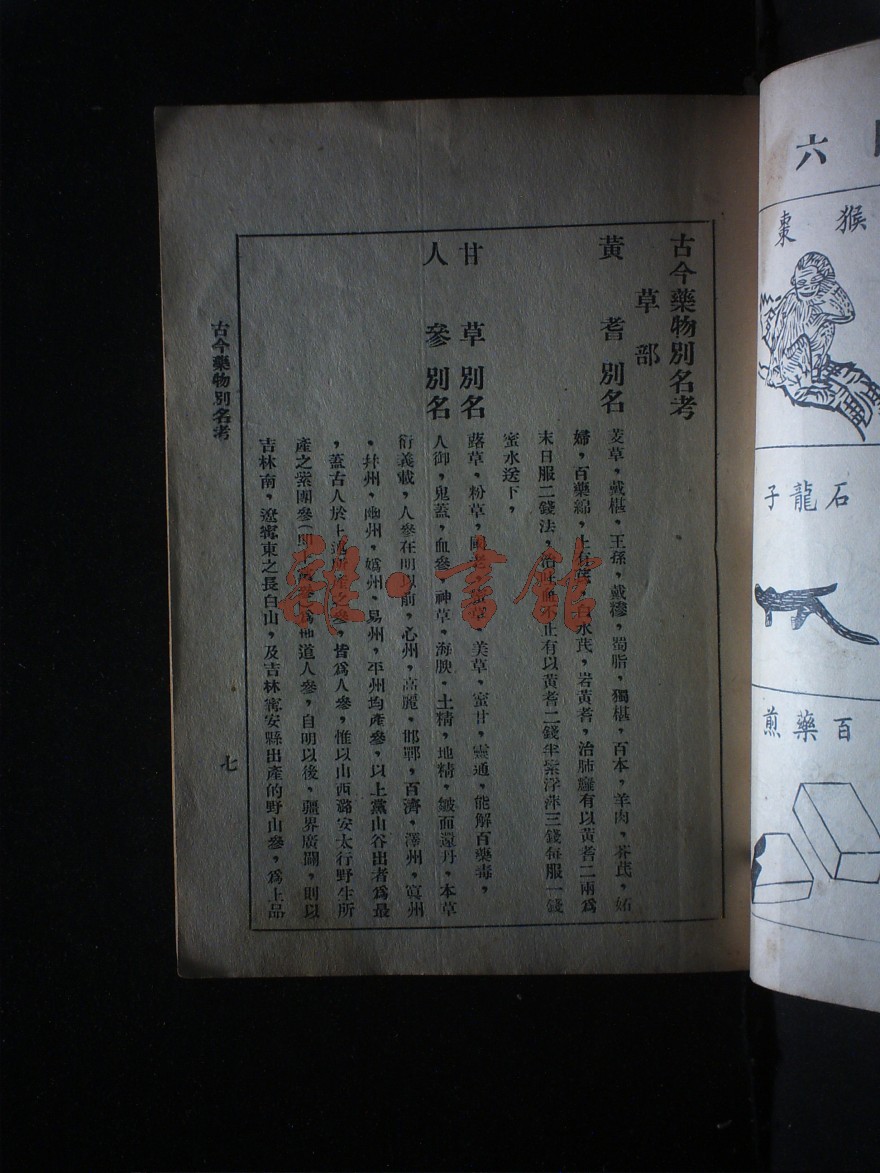 六
猴
棗
石龍子
百藥煎
古今藥物別名考
草部
黃耆別名
芰草，戴椹，王孫，戴糝，蜀脂，獨椹，百本，羊肉，芥芪，妬
婦，百藥綿，上有芪，白水芪，岩黃耆，治肺癰有以黃耆二兩為
末日服二錢法，治不止有以黃耆二錢半紫浮萍三錢每服一錢
蜜水送下，
甘草別名
蕗草，粉草，國老，草，美草，蜜甘，靈通，能解百藥毒，
人參別名
人御，鬼蓋，血參，神草，海腴，土精，地精，皺面還丹，本草
衍義載，人參在明以前，心州，高麗，邯鄲，百濟，澤州，箕州
，幷州，幽州，嬀州，易州，平州均產參，以上黨山谷出者為最
，蓋古人於上之參，皆為人參，惟以山西潞安太行野生所
產之紫團參（即道人參，自明以後，疆界廣闢，則以
吉林南，遼寧東之長白山，及吉林寧安縣出產的野山參，為上品
古今藥物別名考
七
雜·書館